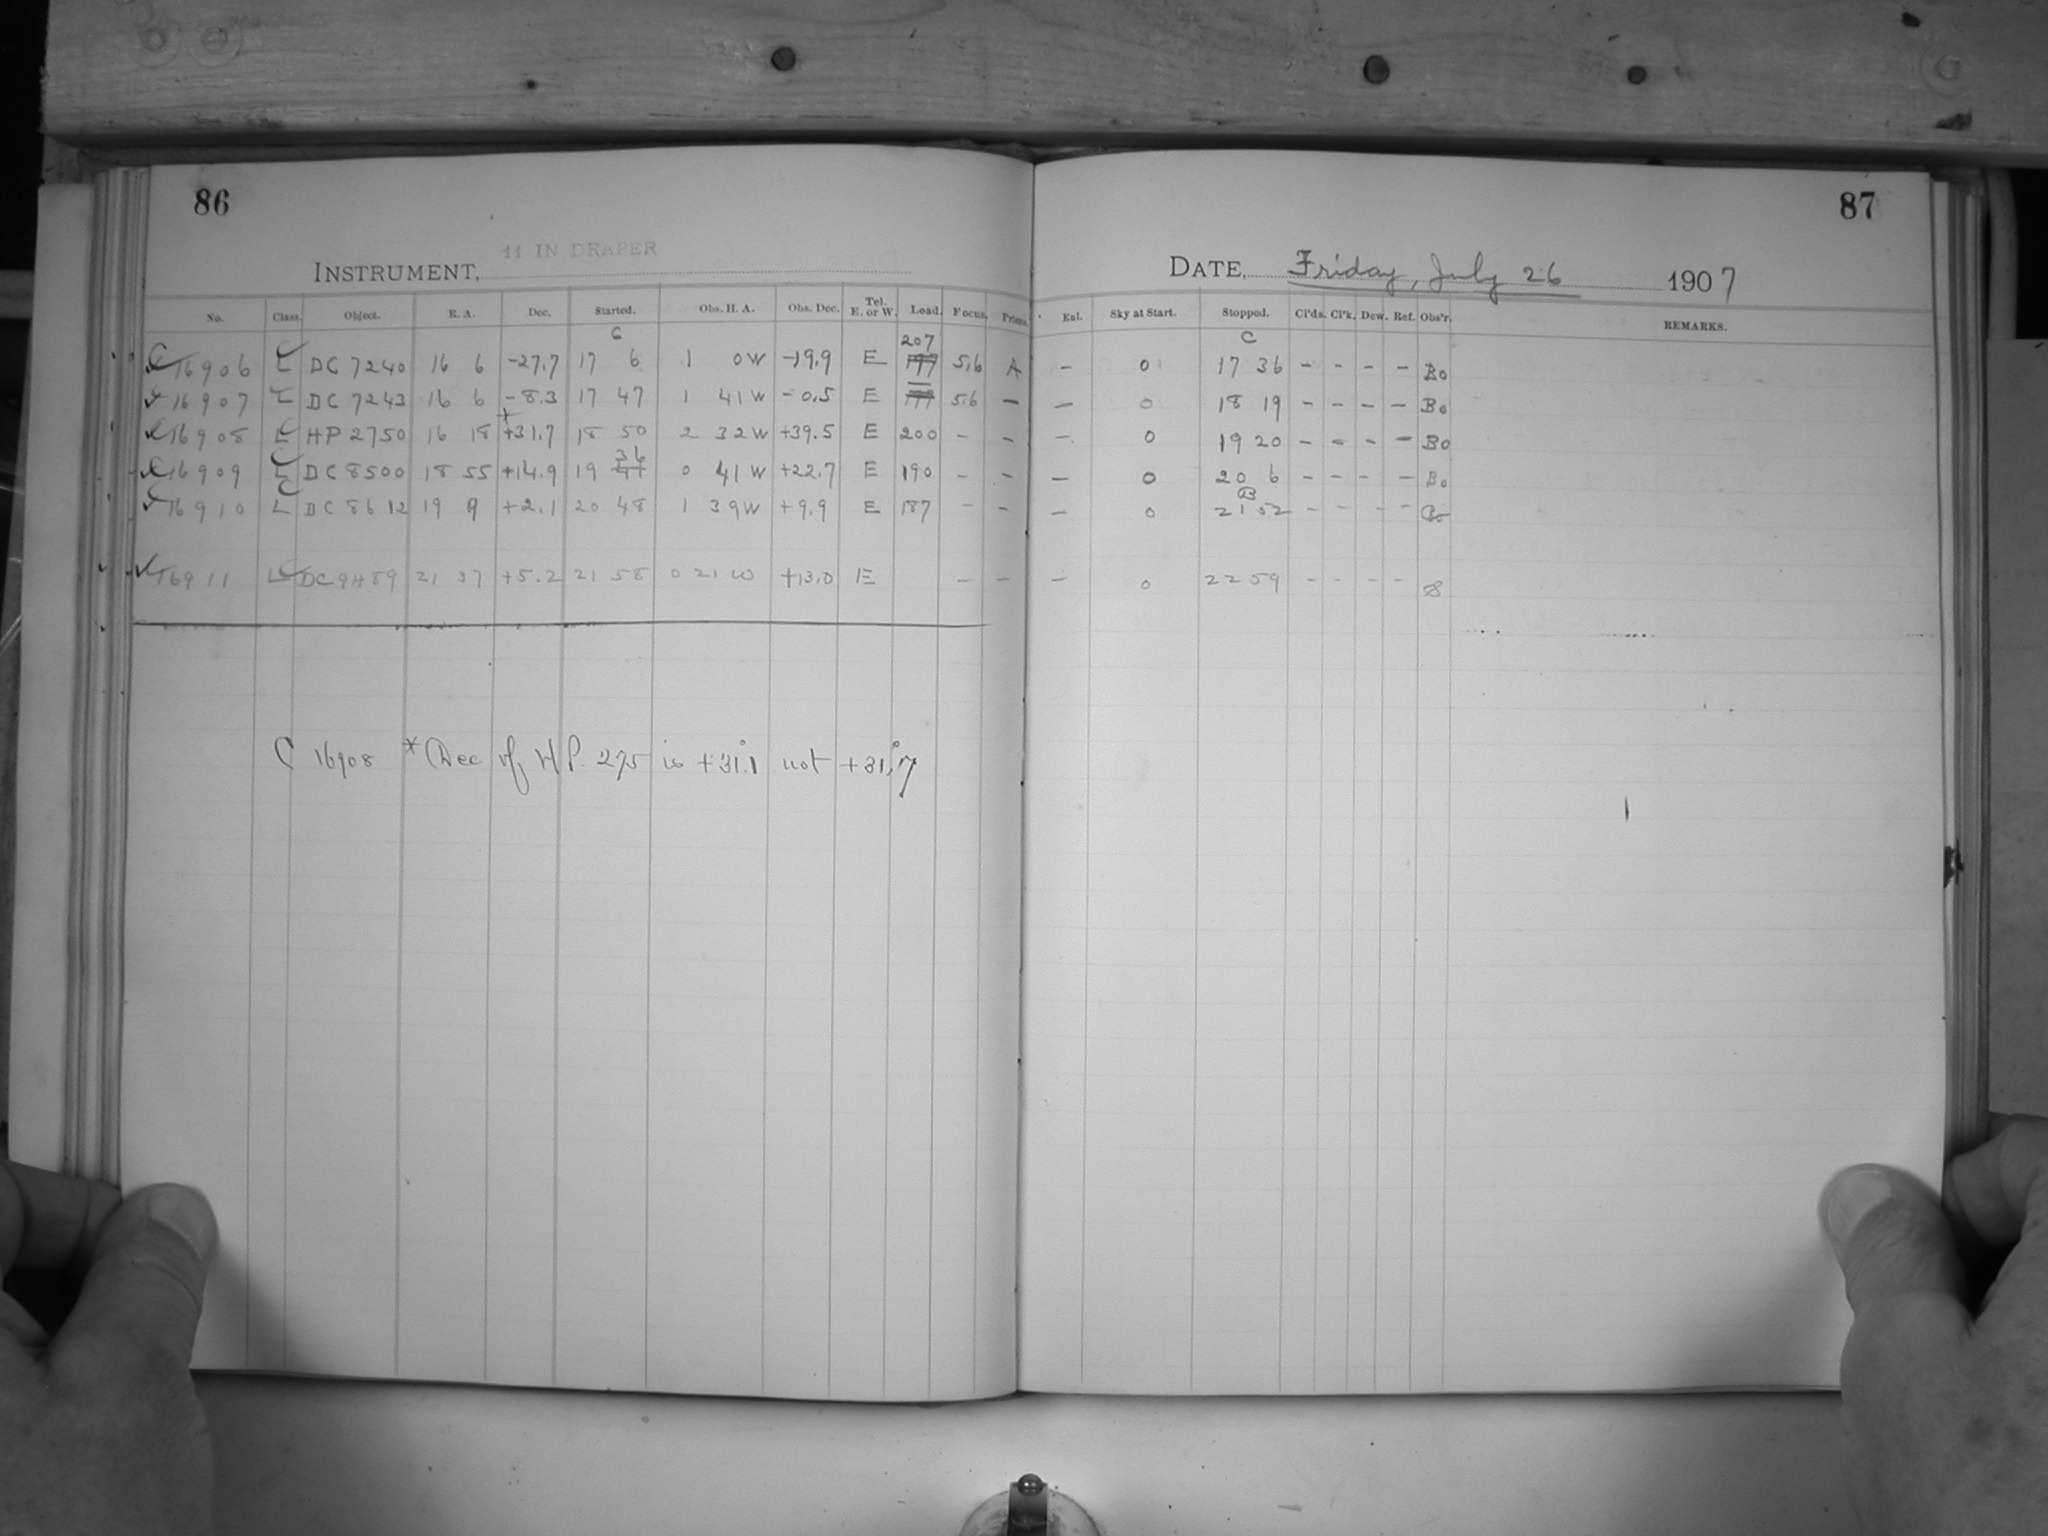 86
87
11 IN DRAPER
INSTRUMENT,
DATE, Friday, July 26 1907
No. Class. Object. R. A. Dec. Started. Obs. H. A. Obs. Dec. Tel. E. or W. Load. Focus. Prisms. Eal. Sky at Start. Stopped. Cl'ds. Cl'k. Dew. Ref. Obs'r. REMARKS.
C 207 C
C 16906 L DC 7240 16 6 -27.7 17 6 1 0W -19.9 E 197 5.6 A - 0 17 36 - - - - Bo
C 16907 L DC 7243 16 6 -8.3 17 47 1 41W -0.5 E 5.6 - - 0 18 19 - - - - Bo
C 16908 L HP 2750 16 18 +31.7 18 50 2 32W +39.5 E 200 - - - 0 19 20 - - - - Bo
36
C 16909 L DC 8500 18 55 +14.9 19 41 0 41W +22.7 E 190 - - - 0 20 6 - - - - Bo
C 16910 L DC 8612 19 9 +2.1 20 48 1 39W +9.9 E 187 - - - 0 21 52 - - - -
C 16911 L DC 9489 21 37 +5.2 21 58 0 21 W +13.0 E - - - 0 22 59 - - - -
C 16908 * Dec of H.P. 275 is +31°.1 not +31°.7